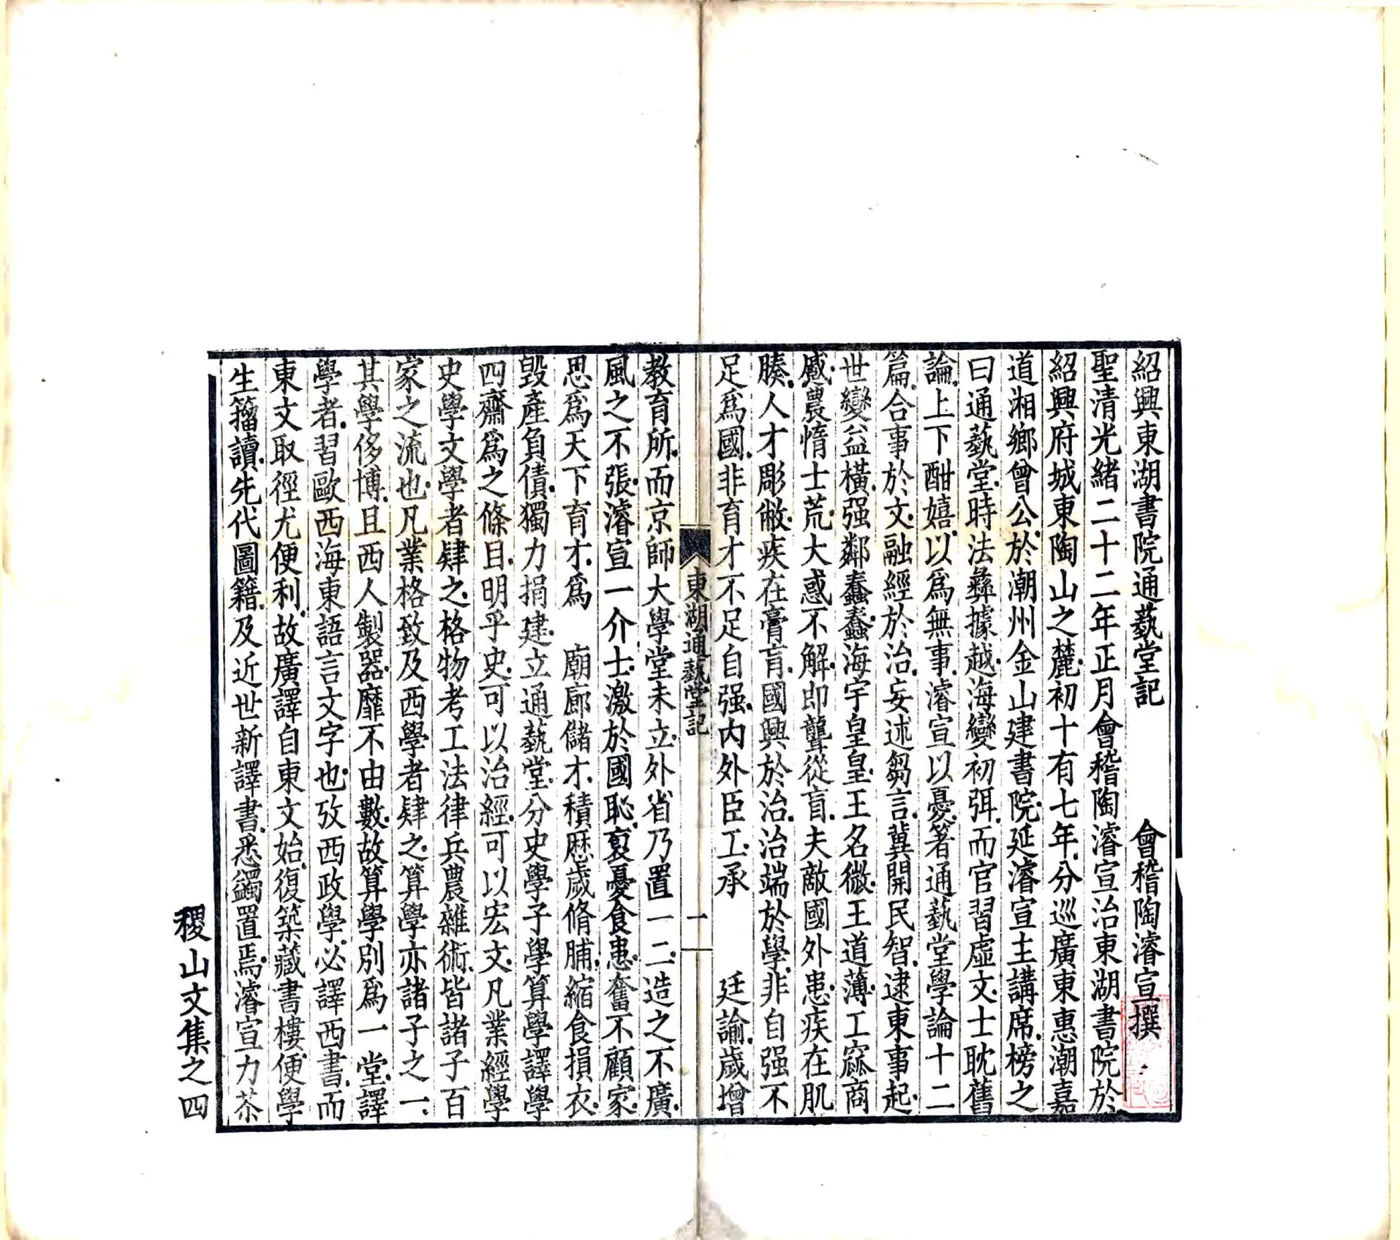 紹興東湖書院通蓺堂記　　會稽陶濬宣撰
聖清光緒二十二年正月會稽陶濬宣治東湖書院於
紹興府城東陶山之麓初十有七年分巡廣東惠潮嘉
道湘鄉曾公於潮州金山建書院延濬宣主講席榜之
曰通蓺堂時法彝據越海變初弭而官習虛文士耽舊
論上下酣嬉以爲無事濬宣以憂著通蓺堂學論十二
篇合事於文融經於治妄述芻言冀開民智逮東事起
世變益橫强鄰蠢蠢海宇皇皇王名微王道薄工窳商
慼農惰士荒大惑不解即聾從盲夫敵國外患疾在肌
腠人才彫敝疾在膏肓國興於治治端於學非自强不
足爲國非育才不足自强內外臣工承　廷諭歲增
東湖通蓺堂記　一
教育所而京師大學堂未立外省乃置一二造之不廣
風之不張濬宣一介士激於國恥裒憂食患奮不顧家
思爲天下育才爲　廟廊儲才積歷歲脩脯縮食損衣
毀產負債獨力捐建立通蓺堂分史學子學算學譯學
四齋爲之條目明乎史可以治經可以宏文凡業經學
史學文學者肄之格物考工法律兵農雜術皆諸子百
家之流也凡業格致及西學者肄之算學亦諸子之一
其學侈博且西人製器靡不由數故算學別爲一堂譯
學者習歐西海東語言文字也攷西政學必譯西書而
東文取徑尤便利故廣譯自東文始復築藏書樓便學
生籀讀先代圖籍及近世新譯書悉蠲置焉濬宣力苶
稷山文集之四